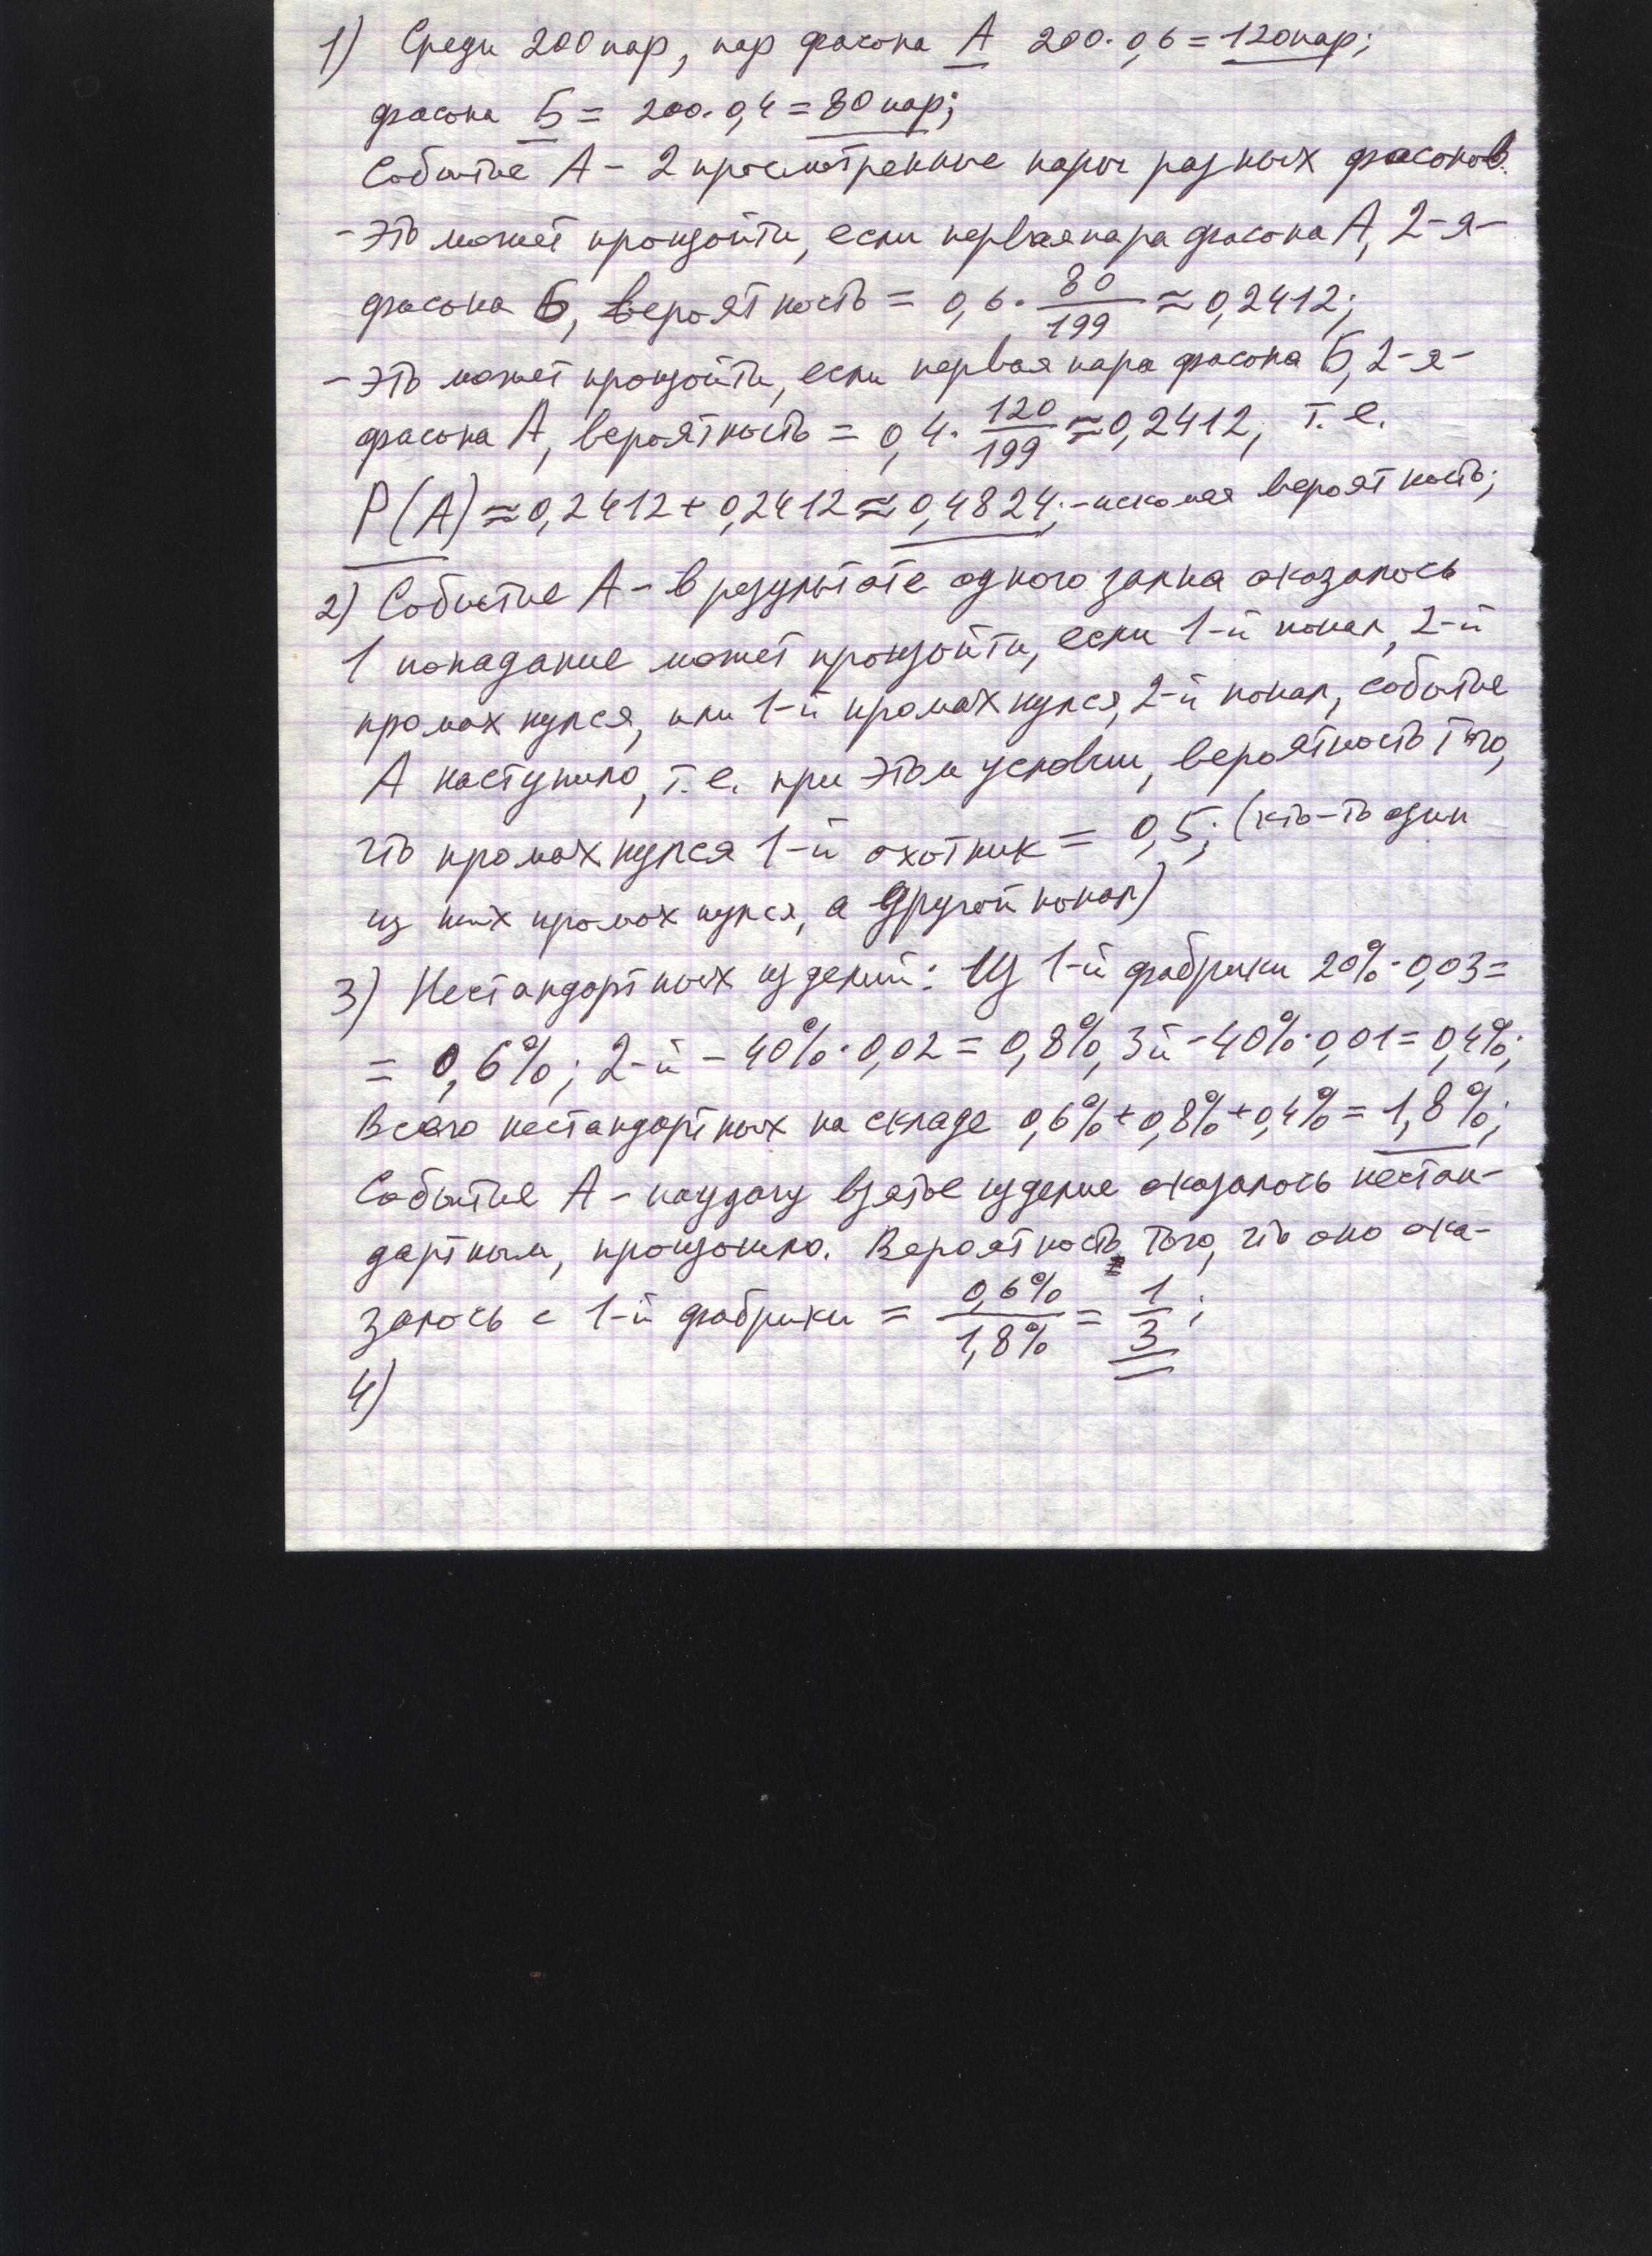 1) Среди 200 пар, пар фасона А 200·0,6=120 пар;
фасона Б = 200·0,4=80 пар;
Событие А – 2 просмотренные пары разных фасонов.
- это может произойти, если первая пара фасона А, 2-я-
фасона Б, вероятность = 0,6·80/199≈0,2412;
- это может произойти, если первая пара фасона Б, 2-я-
фасона А, вероятность = 0,4·120/199≈0,2412, т.е.
P(A)≈0,2412+0,2412≈0,4824;-искомая вероятность;
2) Событие А – в результате одного залпа оказалось
1 попадание может произойти, если 1-й попал, 2-й
промахнулся, или 1-й промахнулся, 2-й попал, событие
А наступило, т.е. при этом условии, вероятность того,
что промахнулся 1-й охотник = 0,5; (кто-то один
из них промахнулся, а другой попал)
3) Нестандартных изделий: Из 1-й фабрики 20%·0,03=
= 0,6%; 2-й – 40%·0,02=0,8%, 3й-40%·0,01=0,4%;
Всего нестандартных на складе 0,6%+0,8%+0,4%=1,8%;
Событие А – наудачу взятое изделие оказалось нестан-
дартным, произошло. Вероятность того, что оно ока-
залось с 1-й фабрики = 0,6%/1,8% = 1/3;
4)